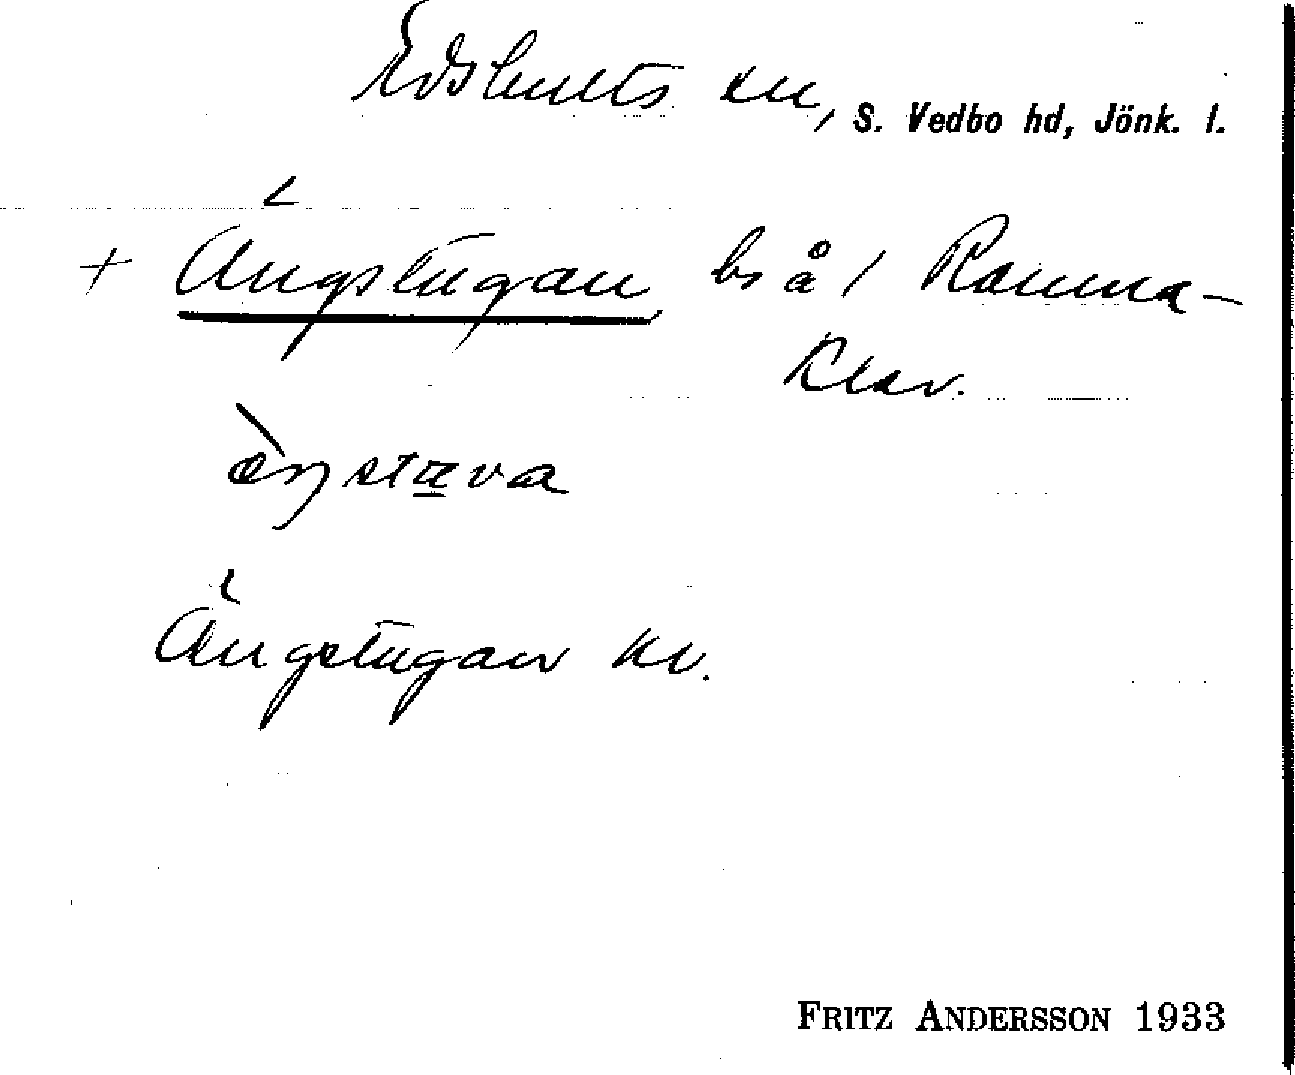 Edshults sn, S. Vedbo hd, Jönk. l.
+ Ängstugan bs å / Ramna-
klev.
æ̀ŋstæva
Ängstugan kv.
FRITZ ANDERSSON 1933